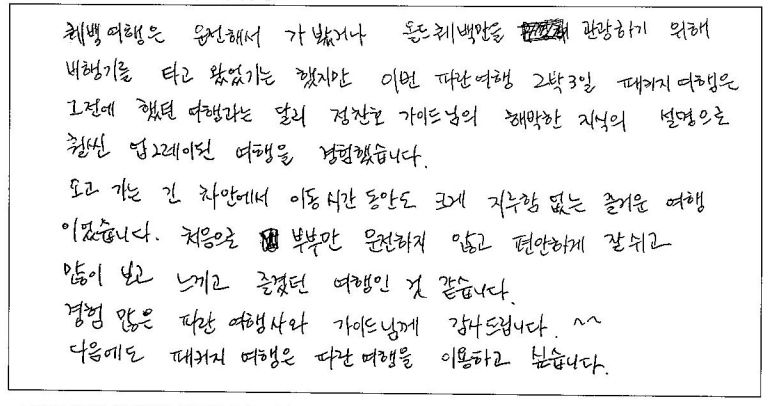 퀘백 여행은 운전해서 가 봤거나 올드퀘백만을 관광하기 위해
비행기를 타고 왔었기는 했지만 이번 파란여행 2박3일 패키지 여행은
그전에 했던 여행과는 달리 정찬호 가이드님의 해박한 지식의 설명으로
훨씬 업그레이된 여행을 경험했습니다.
오고 가는 긴 차안에서 이동시간 동안도 크게 지루함 없는 즐거운 여행
이었습니다. 처음으로 부부만 운전하지 않고 편안하게 잘 쉬고
많이 보고 느끼고 즐겼던 여행인 것 같습니다.
경험 많은 파란 여행사와 가이드님께 감사드립니다. ~~
다음에도 패키지 여행은 파란여행을 이용하고 싶습니다.